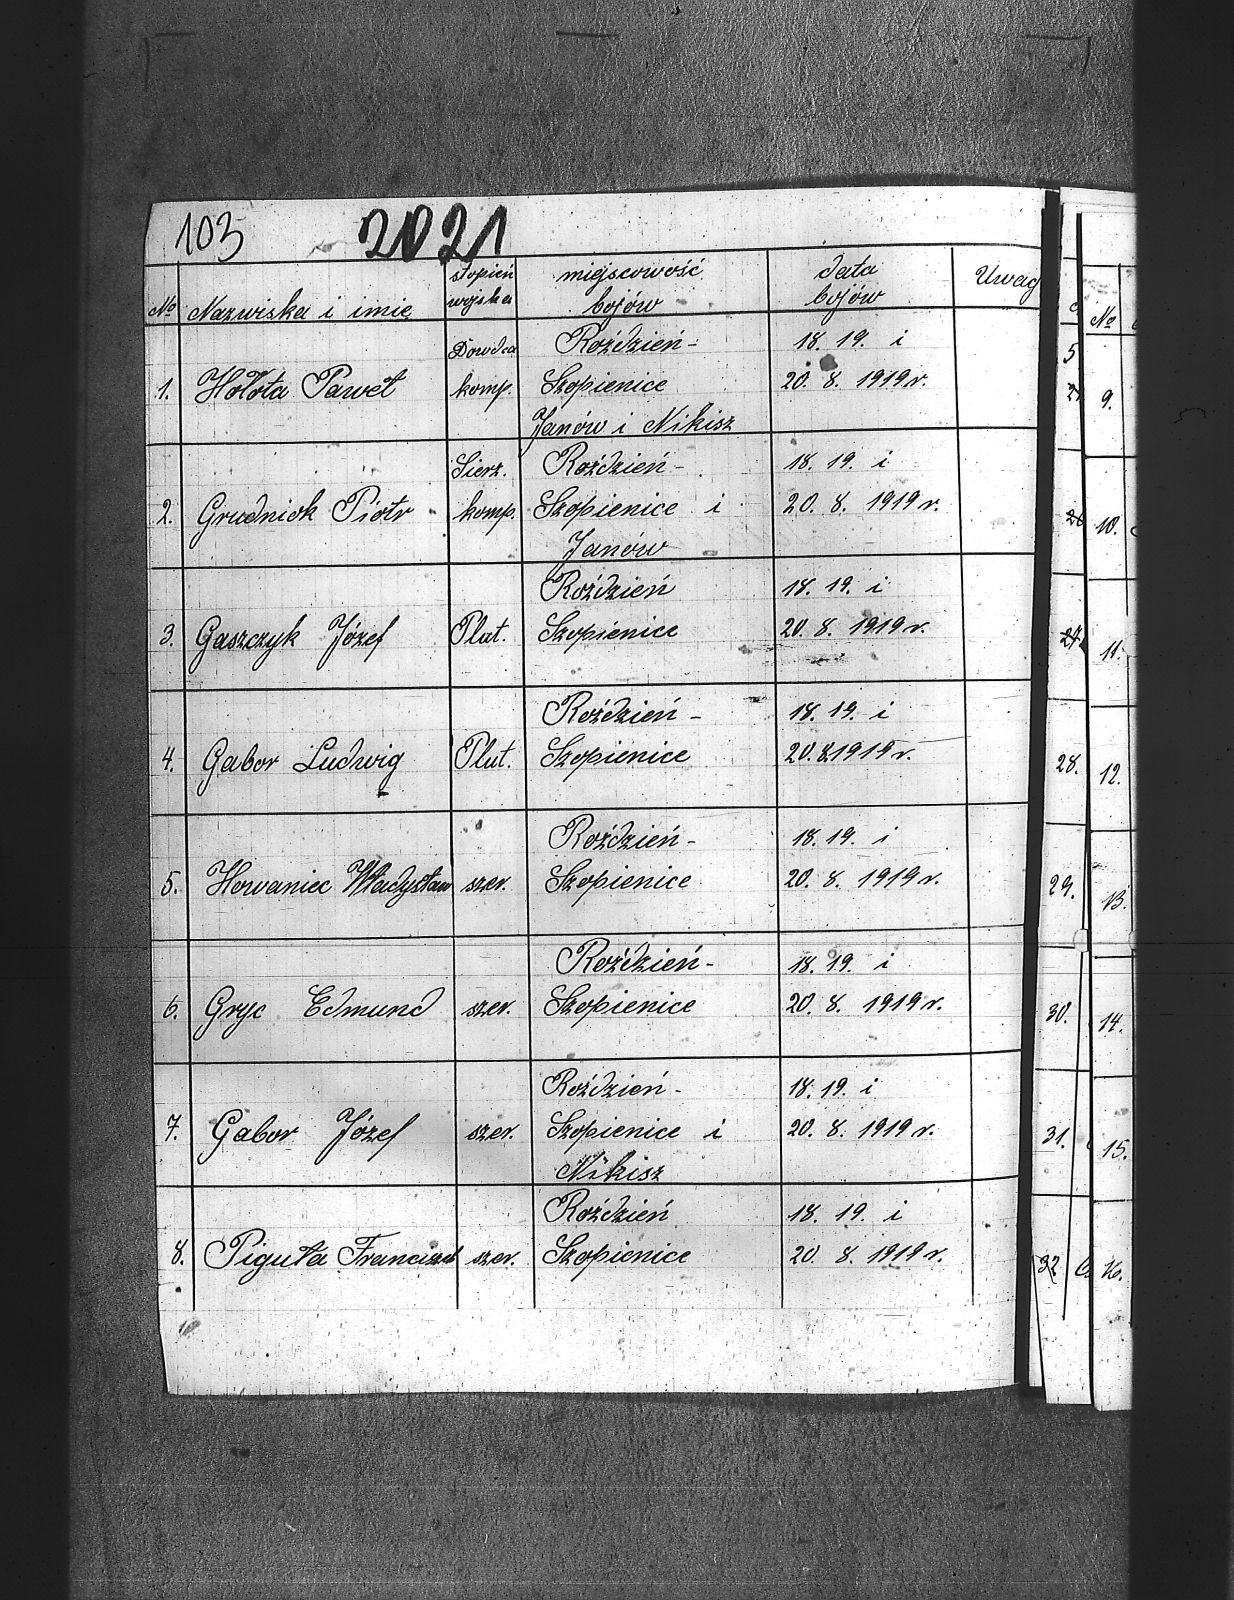 103 2021
№ Nazwiska i imię stopień wojska miejscowość bojów data bojów Uwag
Dowdca Roździeń- 18. 19. i
1. Hołota Paweł komp. Szopienice 20. 8. 1919 r.
Janów i Nikisz
Sierz. Roździeń- 18. 19. i
2. Grudniok Piotr komp. Szopienice i 20. 8. 1919 r.
Janów
Roździeń 18. 19. i
3. Gaszczyk Józef Plut. Szopienice 20. 8. 1919 r.
Roździeń- 18. 19. i
4. Gabor Ludwig Plut. Szopienice 20.8.1919 r.
Roździeń- 18. 19. i
5. Howaniec Władysław szer. Szopienice 20. 8. 1919 r.
Roździeń- 18. 19. i
6. Gryc Edmund szer. Szopienice 20. 8. 1919 r.
Roździeń- 18. 19. i
7. Gabor Józef szer. Szopienice i 20. 8. 1919 r.
Nikisz
Roździeń 18. 19. i
8. Piguła Franciszek szer. Szopienice 20. 8. 1919 r.
28.
29.
30.
31.
32
№
9.
10.
11.
12.
13.
14.
15.
16.